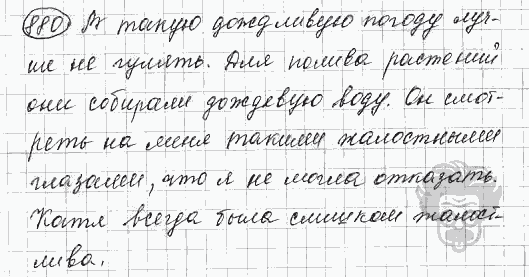 880) В такую дождливую погоду луч-
ше не гулять. Для полива растений
они собирали дождевую воду. Он смот-
реть на меня такими жалостными
глазами, что я не могла отказать.
Катя всегда была слишком жалос-
лива.